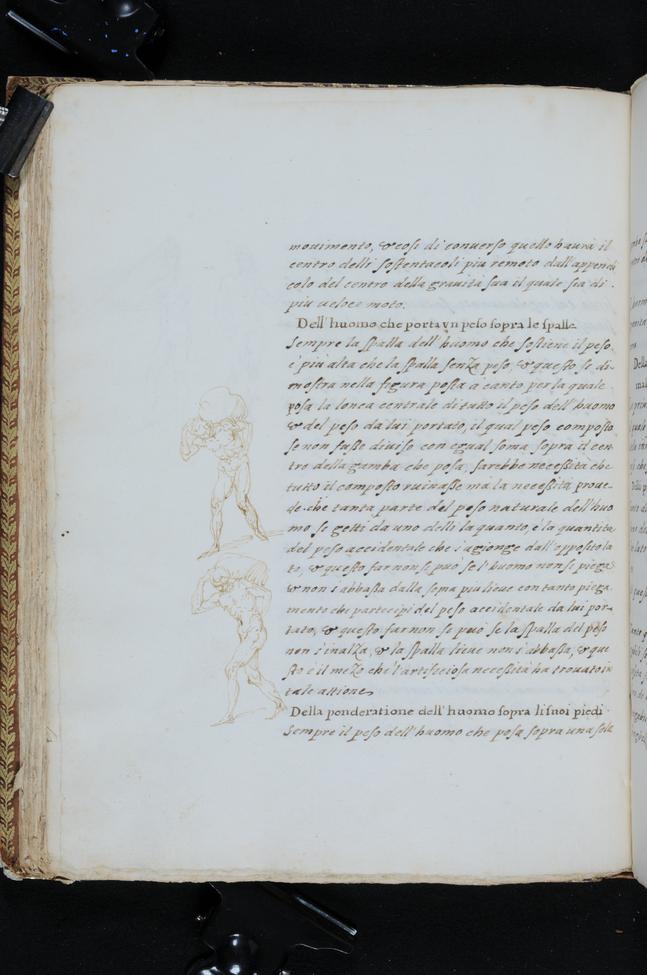 mouimento, & cosi di conuerso quello haurà il
centro delli sostentacoli piu remoto dall'appendi
colo del centro della grauità sua il quale sia di
piu ueloce moto.
Dell'huomo che porta vn peso sopra le spalle
Sempre la spalla dell'huomo che sostiene il peso
è piu alta che la spalla senza peso, & questo si di-
mostra nella figura posta a canto per la quale
posa la linea centrale di tutto il peso dell'huomo
& del peso da lui portato, il qual peso composto
se non fusse diuiso con egual soma sopra il cen
tro della gamba che posa, sarebbe necessità che
tutto il composto ruinasse ma la necessità proue
de che tanta parte del peso naturale dell'huo
mo si getti da uno delli la quanto, è la quantita
del peso accidentale che s'agionge dall'opposito la
to, & questo far non si puo se l'huomo non si piega
& non s'abbassa dalla soma piu lieue con tanto piega
mento che partecipi del peso accidentale da lui por-
tato, & questo far non si puo se la spalla del peso
non s'inalza, & la spalla lieue non s'abbassa, & que
sto è il mezo che l'artificiosa necessità ha trouato in
tale attione
Della ponderatione dell'huomo sopra li suoi piedi
Sempre il peso dell'huomo che posa sopra una sola